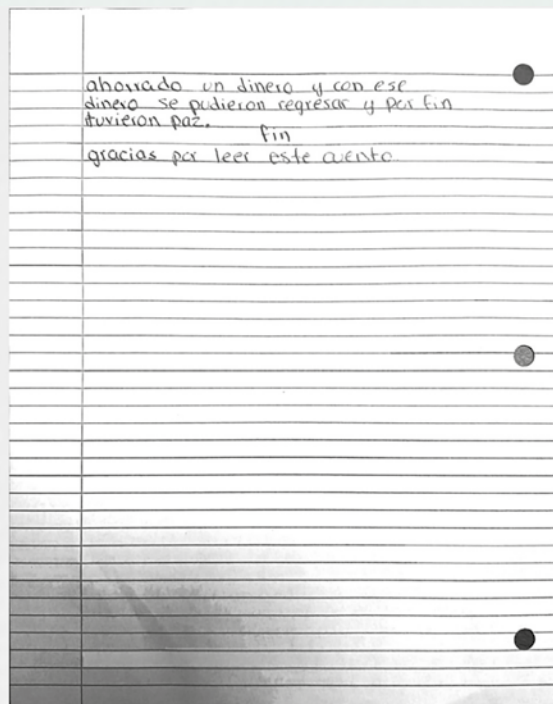 ahorrado un dinero y con ese
dinero se pudieron regresar y por fin
tuvieron paz.
fin
gracias por leer este cuento